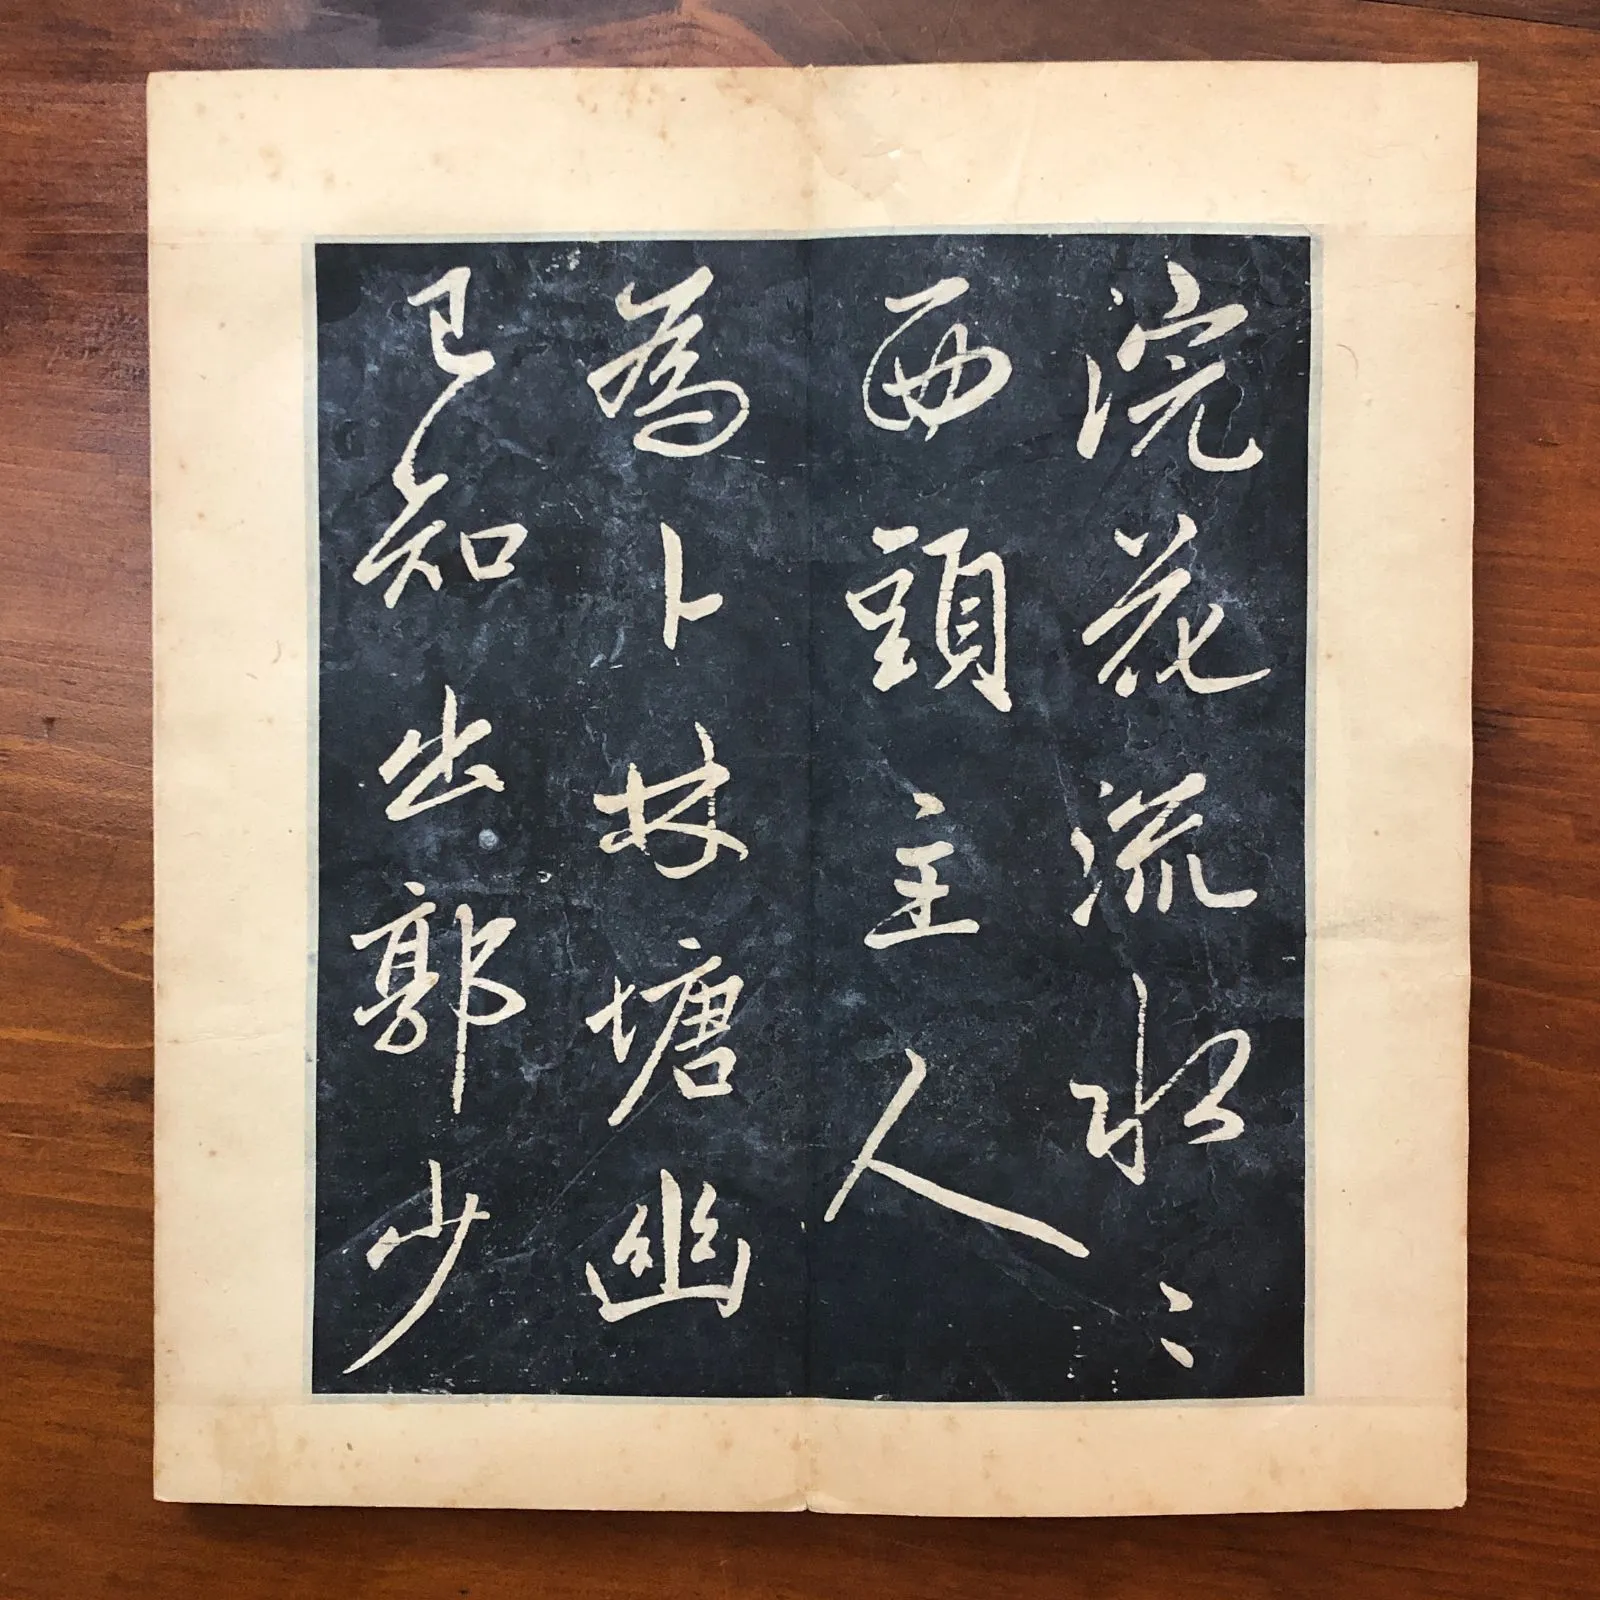 浣花流水〻
西頭主人
為卜林塘幽
已知出郭少